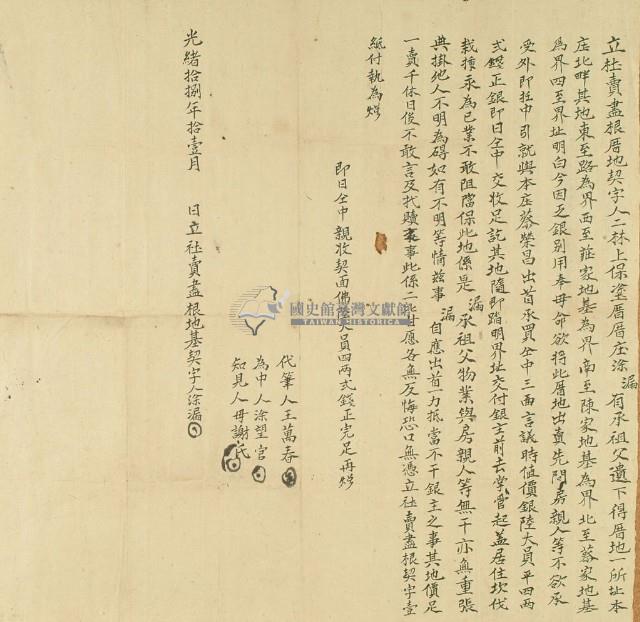 立杜賣盡根厝地契字人二林上保塗厝厝庄涂漏有承祖父遺下得厝地一所址本
庄北畔其地東至路為界西至莊家地基為界南至陳家地基為界北至蔡家地基
為界四至界址明白今因乏銀別用奉母命欲將此厝地出賣先問房親人等不欲承
受外即托中引就與本庄蔡榮昌出首承買仝中三面言議時值價銀陸大員平四兩
弍錢正銀即日仝中交收足訖其地隨即踏明界址交付銀主前去掌管起蓋居住坎伐
栽種永為己業不敢阻當保此地係是漏承祖父物業與房親人等無干亦無重張
典掛他人不明為碍如有不明等情滋事漏自應出首一力抵當不干銀主之事其地價足
一賣千休日後不敢言及找贖事此係二比甘愿各無反悔恐口無憑立杜賣盡根契字壹
紙付執為炤
即日仝中親收契面佛大員四兩弍錢正完足再炤
代筆人王萬春
為中人涂望宮
知見人母謝氏
光緒拾捌年拾壹月 日立杜賣盡根地基契字人涂漏
國史館臺灣文獻館
TAIWAN HISTORICA